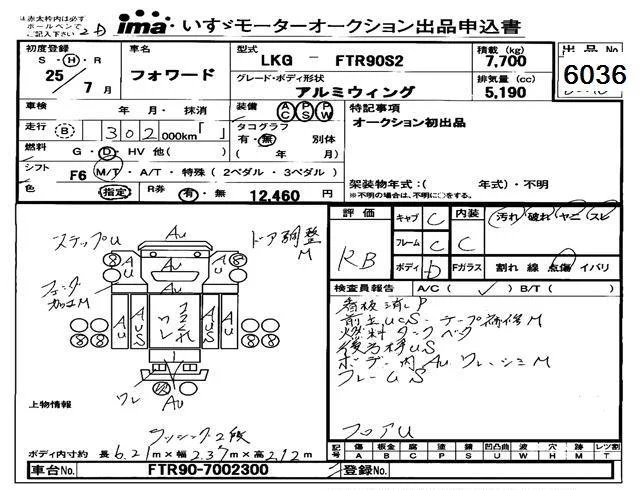 ※赤太枠内は必ず
ボールペンで
ご記入下さい
ima いすゞモーターオークション出品申込書
初度登録
S・H・R
25 / 7 月
車名
フォワード
型式
LKG - FTR90S2
グレード・ボディ形状
アルミウィング
積載 (kg)
7,700
排気量 (cc)
5,190
出品 No
6036
車検 年 月・抹消
走行 (B) 302 000km「 」
燃料 G・D・HV 他( )
シフト F6 M/T・A/T・特殊(2ペダル・3ペダル)
色 指定 R券 有・無 12,460 円
装備 AC PS PW
タコグラフ 別体
有・無 ( 年 月)
特記事項
オークション初出品
架装物年式:( 年式)・不明
※不明の場合は、不明に○をする。
評価 RB
キャブ C
フレーム C
ボディ D
内装 C
汚れ 破れ ヤニ スレ
Fガラス 割れ 線 点傷 イバリ
検査員報告 A/C( ✓ ) B/T( )
看板消し P
燃料タンクベタ
ボデー内AU ワレ・シミM
フレームS
フロアU
ステップU
AU
ドア調整
M
ワレ
AU
上物情報
ラッシング2段
ボディ内寸約 長 6.21m×幅 2.37m×高 2.12m
記号 傷 A 板金 B 腐 C 塗 P 錆 S 凹凸曲 U 波 W 穴 H 跡 M レツ割 T
車台No. FTR90-7002300 登録No.